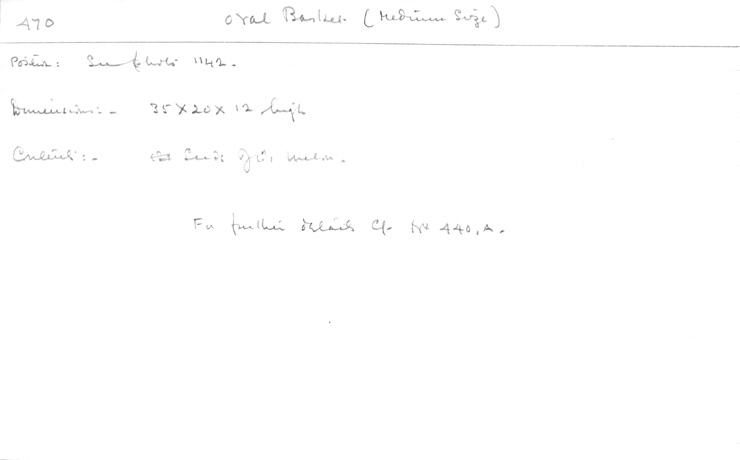 470 Oval Basket. (Medium Size)
Position: See photo 1142.
Dimensions:- 35 X 20 X 12 high
Contents:- Seeds of melon.
For further details Cf. Nº 440,A.